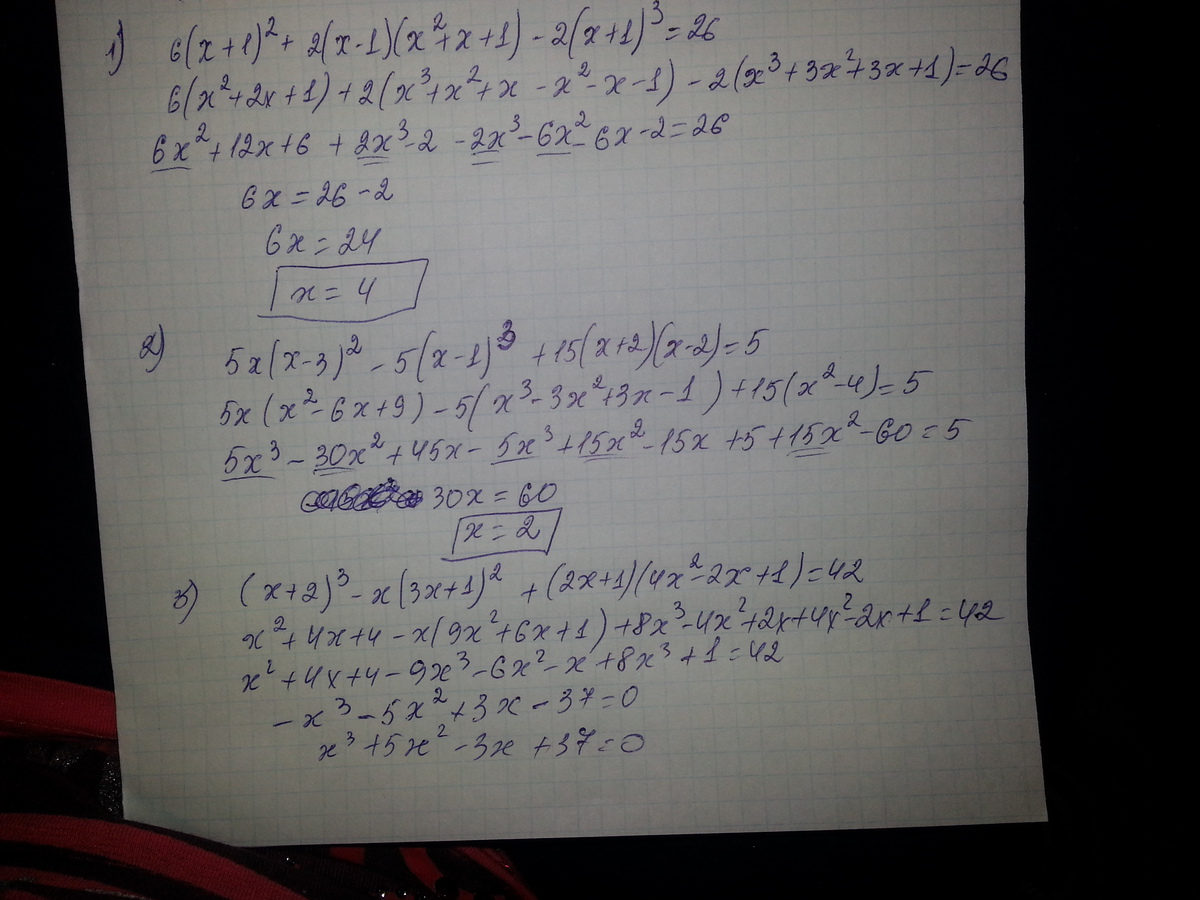 1) 6(x+1)²+ 2(x-1)(x²+x+1) - 2(x+1)³=26
6(x²+2x+1)+2(x³+x²+x -x²-x-1) -2(x³+3x²+3x+1)=26
6x²+12x+6 +2x³-2 -2x³-6x²-6x-2=26
6x=26-2
6x=24
x=4
2) 5x(x-3)² -5(x-1)³ +15(x+2)(x-2)=5
5x(x²-6x+9) -5(x³-3x²+3x-1) +15(x²-4)=5
5x³-30x²+45x-5x³+15x²-15x+5+15x²-60=5
30x=60
x=2
3) (x+2)³-x(3x+1)² +(2x+1)(4x²-2x+1)=42
x²+4x+4-x(9x²+6x+1)+8x³-4x²+2x+4x²-2x+1=42
x²+4x+4-9x³-6x²-x+8x³+1=42
-x³-5x²+3x-37=0
x³+5x²-3x+37=0